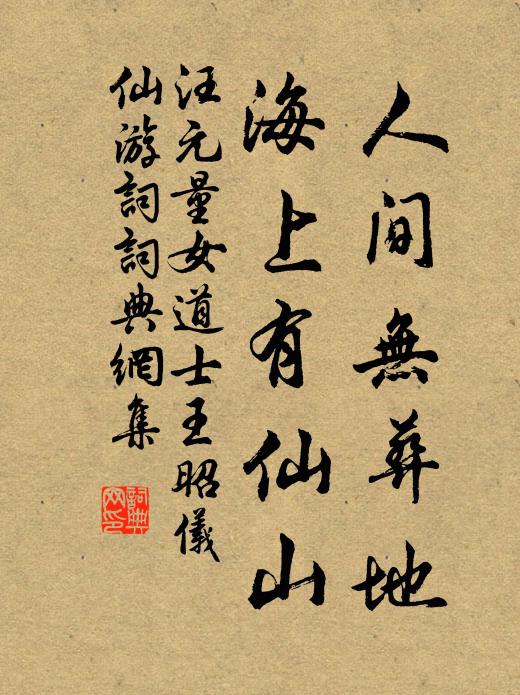 人間無葬地
海上有仙山
汪元量女道士王昭儀
仙游詞詞典網集
詞典
网印